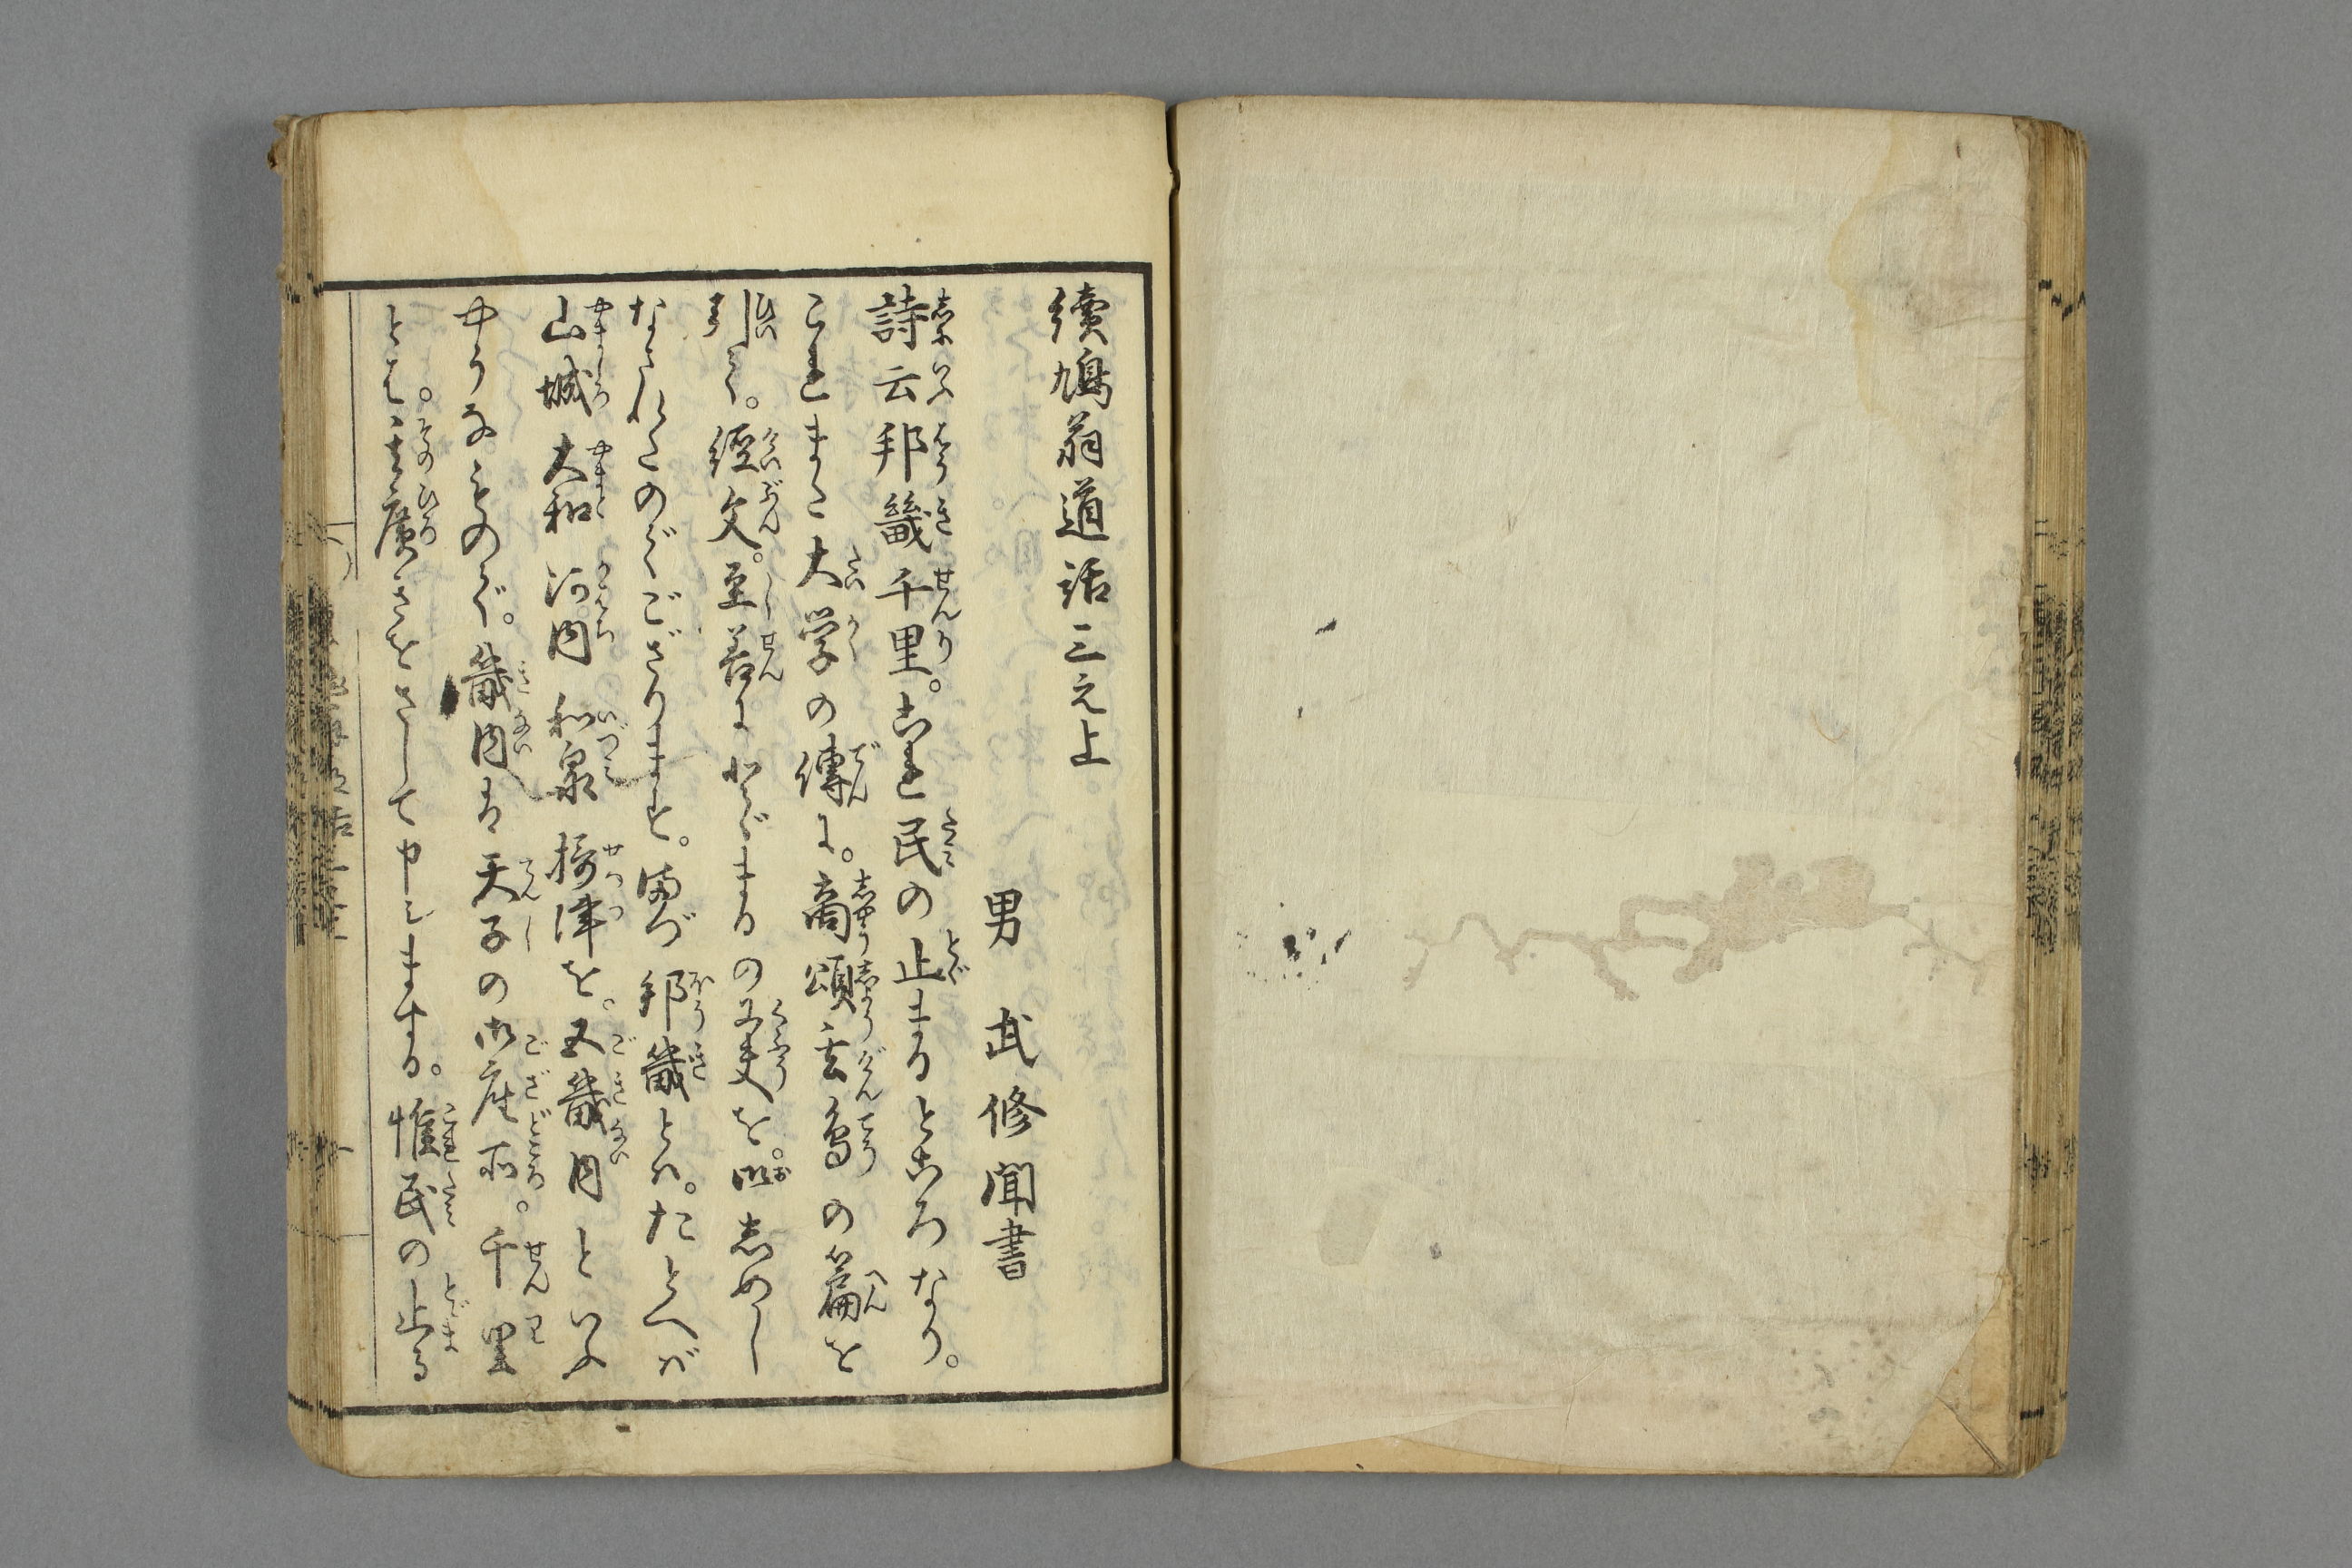 續鳩翁道話三之上
男 武修聞書
詩云邦畿千里。これ民の止まるところなり。
これまた大学の傳に。商頌玄鳥の篇を
引て。經文。至善にとゞまるの工夫を。御しめし
なされたのでござります。まづ邦畿とハ。たとへバ
山城大和河内和泉摂津を。五畿内といふ
やうなものぞ。畿内は天子の御座所。千里
とは、其廣さをさして申シまする。惟民の止る